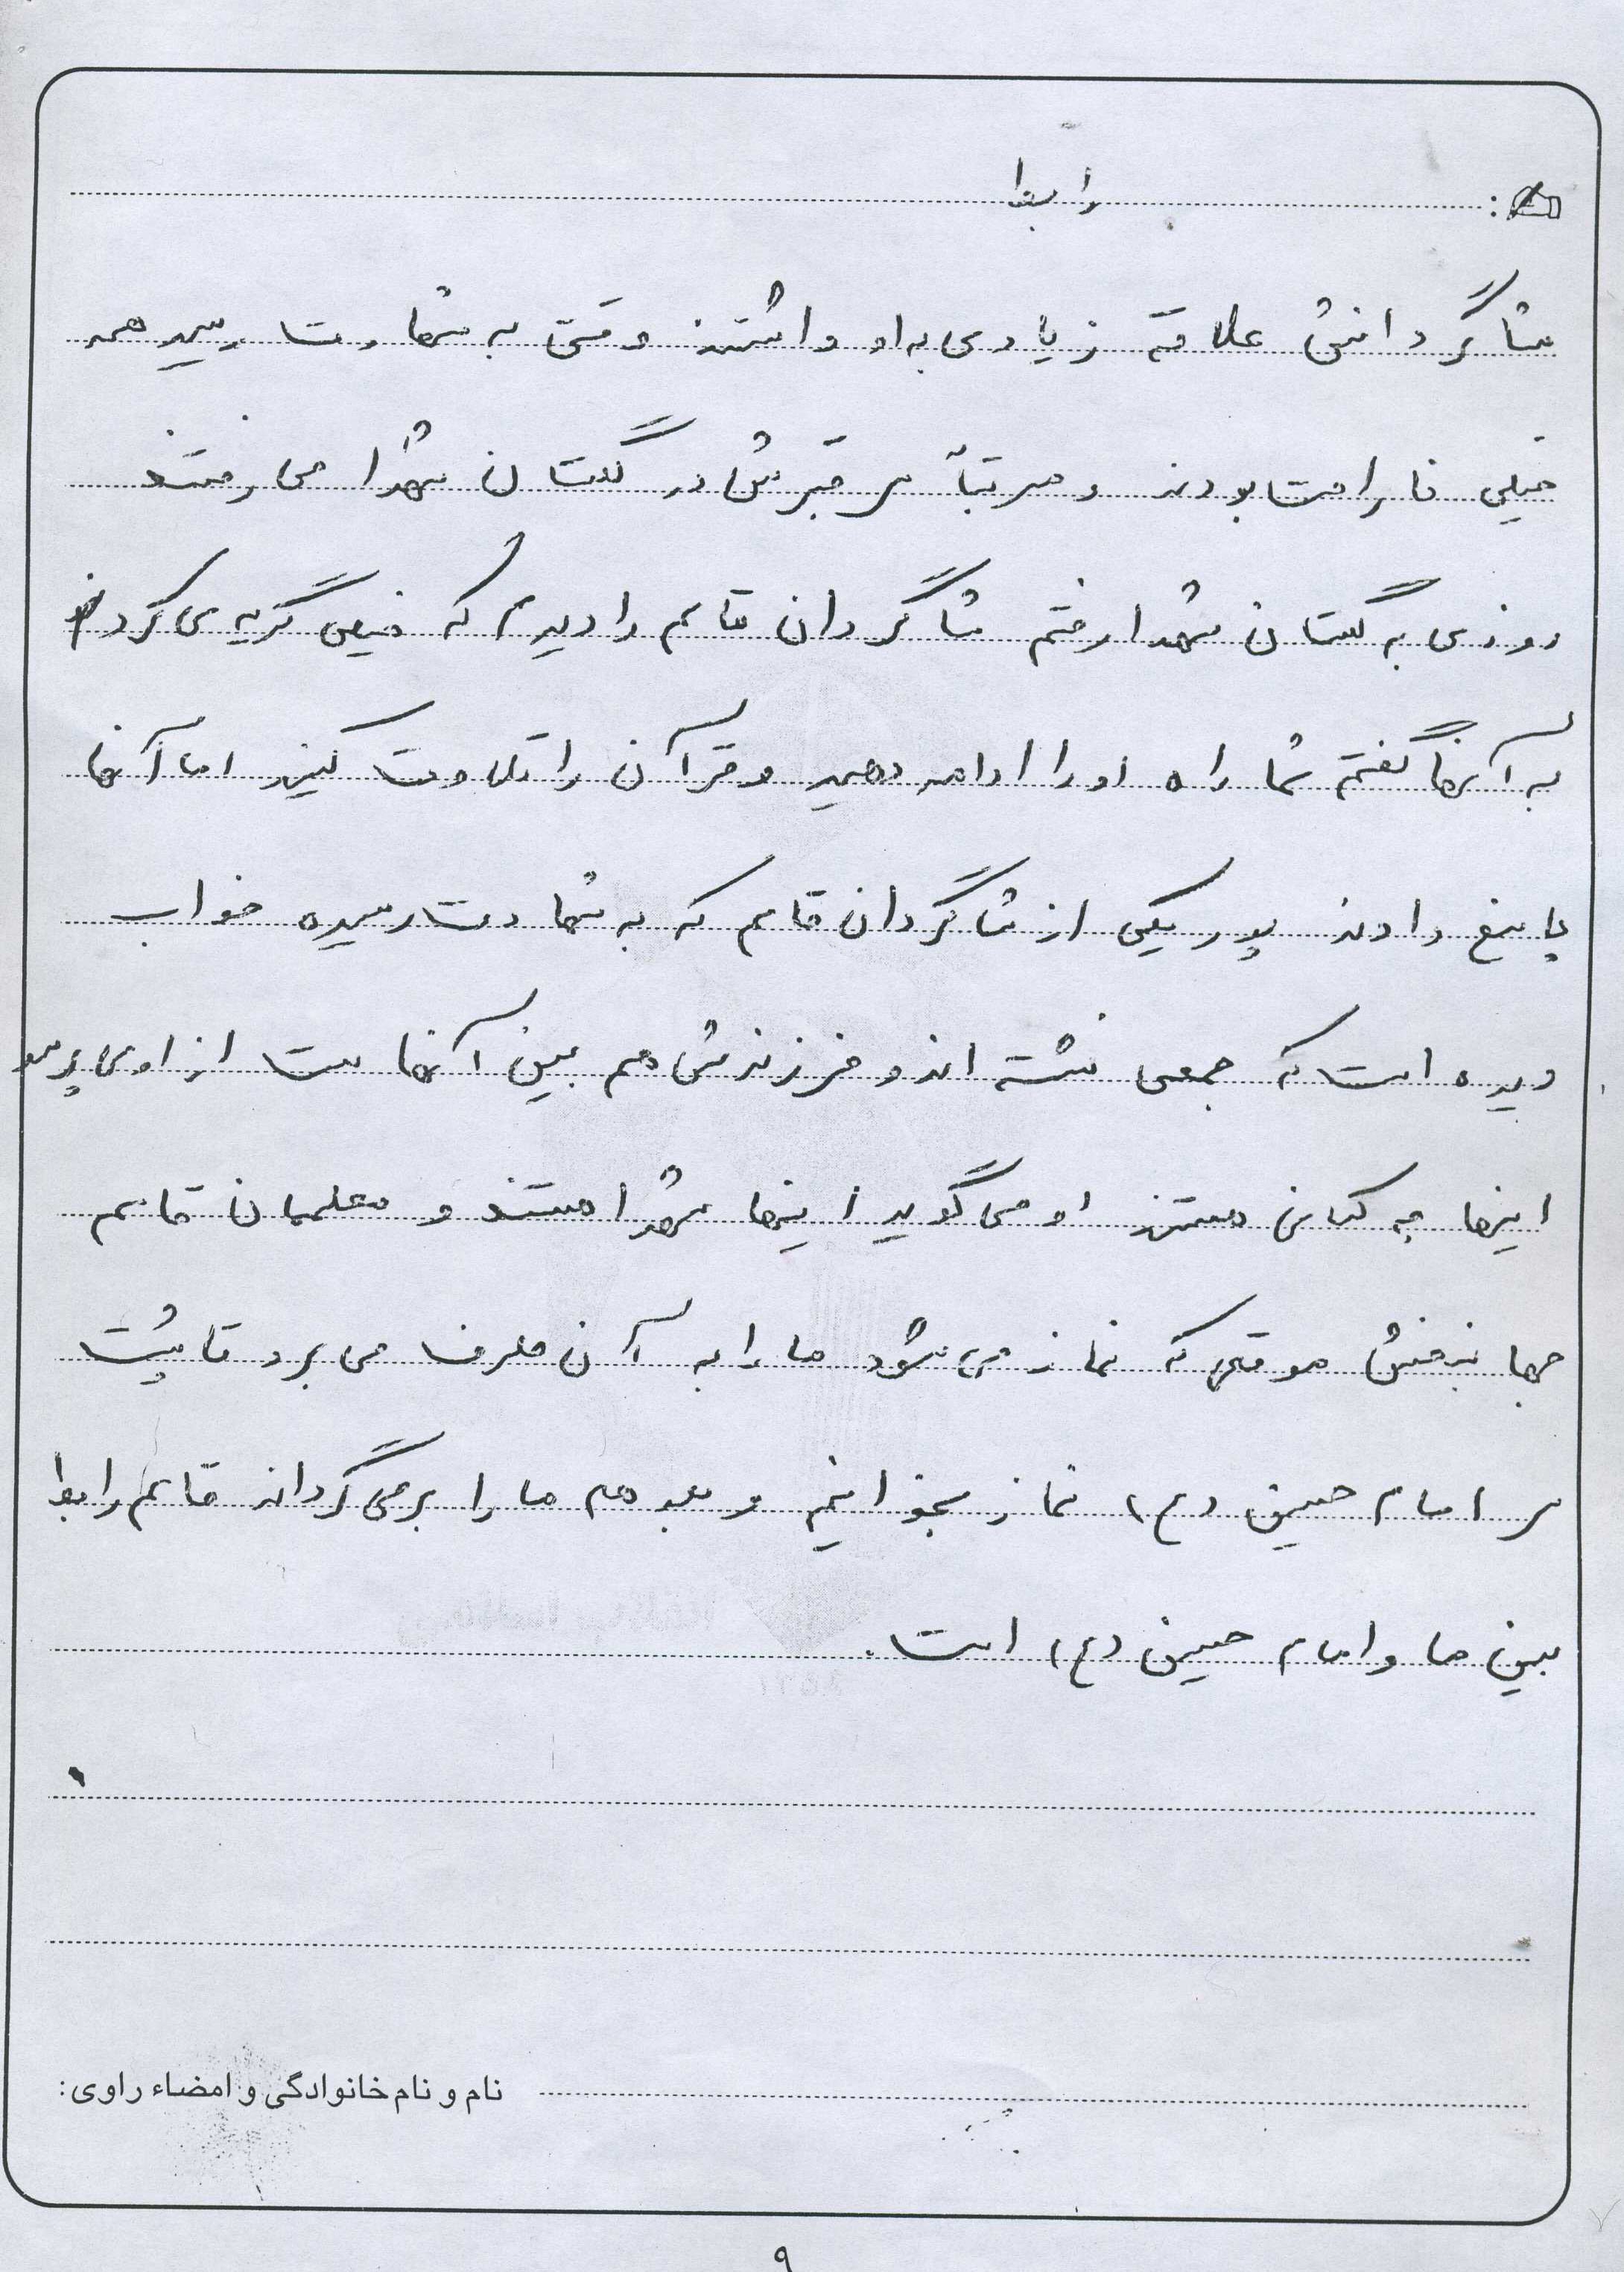 : رابط
شاگردانش علاقه زیادی به او داشتند وقتی به شهادت رسید همه
خیلی ناراحت بودند و مرتباً سر قبرش در گلستان شهدا می رفتند
روزی به گلستان شهدا رفتم شاگردان قاسم را دیدم که خیلی گریه می کردند
به آنها گفتم شما راه او را ادامه دهید و قرآن را تلاوت کنید اما آنها
پاسخ دادند پدر یکی از شاگردان قاسم که به شهادت رسیده خواب
دیده است که جمعی نشسته اند و فرزندش هم بین آنها ست از او می پرسد
اینها چه کسانی هستند او می گوید اینها شهدا هستند و معلمان قاسم
جهانبخش موقعی که نماز می شود ما را به آن طرف می برد تا پشت
سر امام حسین (ع) نماز بخوانیم و بعد هم ما را برمی گرداند قاسم رابط
بین ما و امام حسین (ع) است.
نام و نام خانوادگی و امضاء راوی:
۹